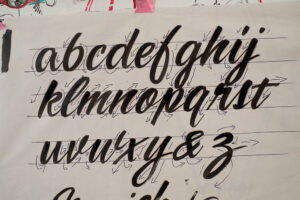 abcdefghij
klmnopqrst
uvwxy&z